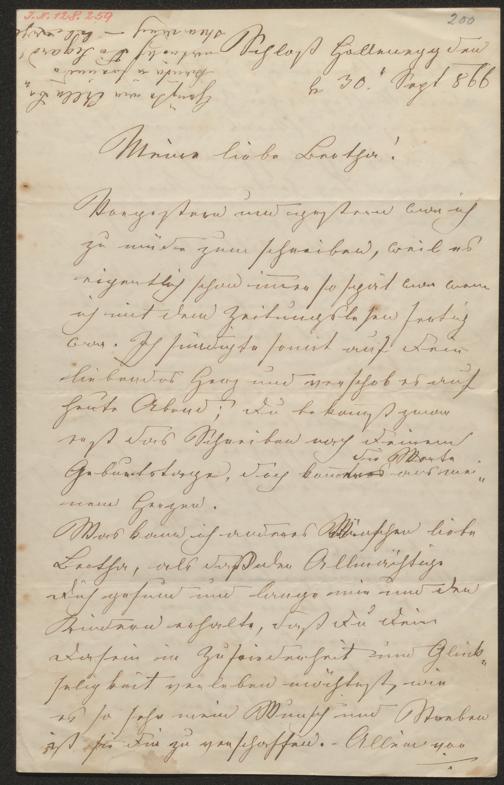 I.N. 128.259
200
Schloß Hollenegg den
30. Sept 866
Meine liebe Bertha!
Vorgestern und gestern war ich
zu müde zum schreiben, weil es
eigentlich schon immer so spät war wenn
ich mit dem Zeitungslesen fertig
war. Ich sündigte somit auf Dein
liebendes Herz und verschob es auf
heute Abend; Du bekomst zwar
erst das Schreiben nach Deinem
Geburtstage, doch kommen die Worte aus mei„
nem Herzen.
Was kann ich anderes Wünschen liebe
Bertha, als daß der Allmächtige
Dich gesund und lange mir und den
Kindern erhalte, daß Du Dein
Dasein in Zufriedenheit und Glück„
seligkeit verleben möchtest, wie
es so sehr mein Wunsch und Streben
ist sie Dir zu verschaffen. - Allein von